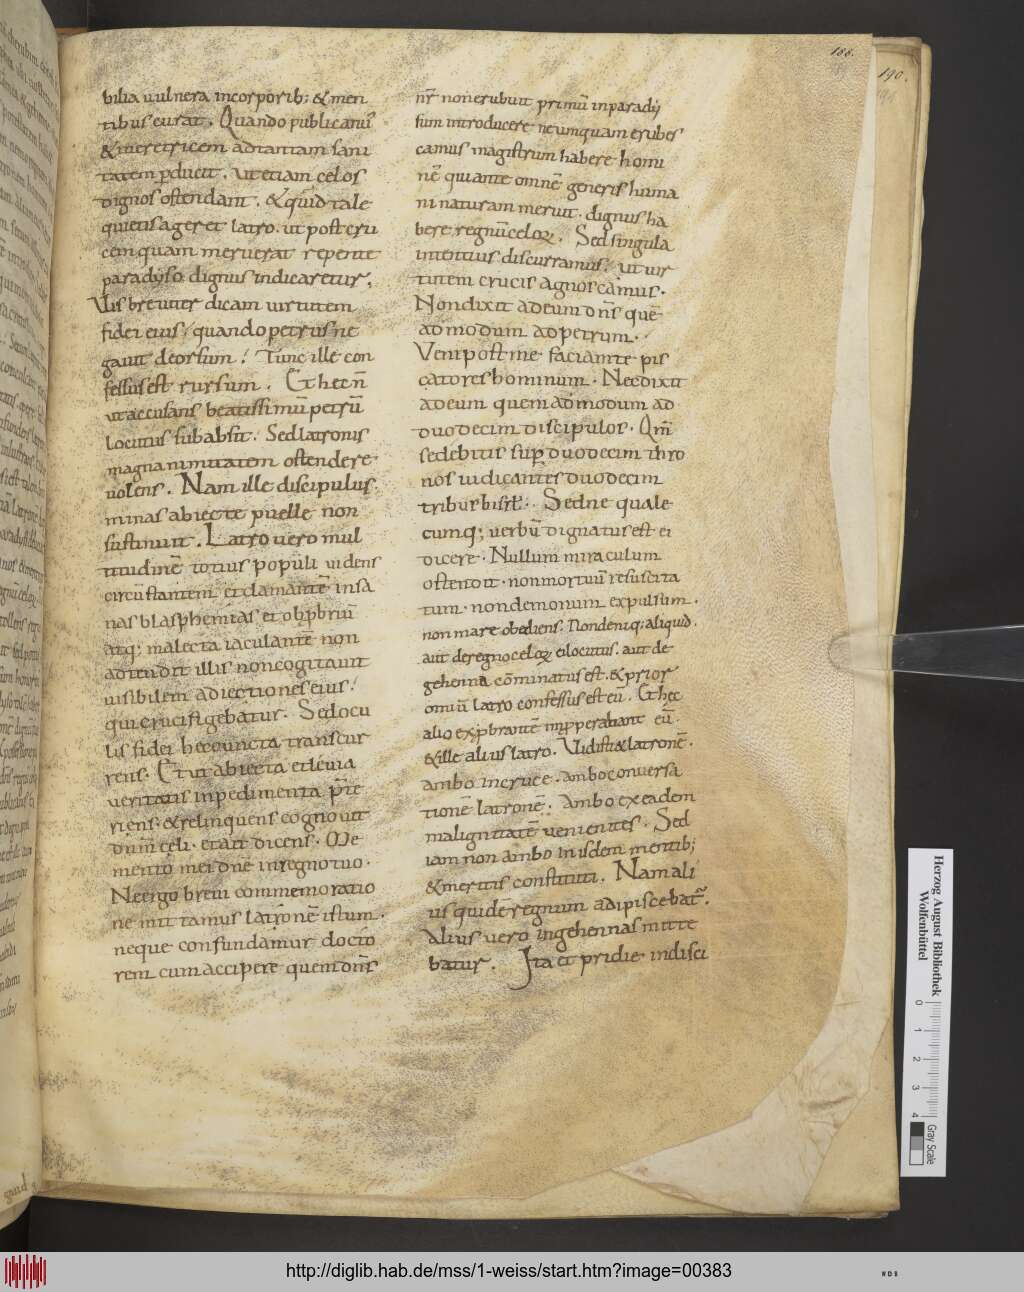 188.
190.
bilia uulnera incorporib; & men
tibus curat. Quando publicanũ
& meretricem adtantam sani
tatem pduat. ut etiam celos
dignos ostendant. & quid tale
quietis ageret latro. ut post cru
cem quam meruerat repente
paradyso dignus indicaretur.
Uis breuiter dicam uirtutem
fidei eius; quando petrus ne
gauit deorsum! Tunc ille con
fessus est rursum. Et hec ñ
ut accusans beatissimũ petrũ
locutus sub absit. Sed latronis
magnanimitatem ostendere
uolens. Nam ille discipulus
minas abiecte puelle non
sustinuit. Latro uero mul
titudinẽ totius populi uidens
circũstantem et clamantẽ insa
nas blasphemias et obpbriũ
atq; maledicta iaculantẽ non
adtendit illis non cogitauit
uisibilem adiectiones eius!
qui crucifigebatur. Sed ocu
lis fidei hec cuncta transcur
rens. Et ut abiecta et leuia
ueritatis inpedimenta pte
riens. & relinquens cognouit
dnm celi. et ait dicens. Me
mento mei dne inregno tuo.
Nec ergo breui commemoratio
ne mittamus latronẽ istum.
neque confundamur docto
rem cum accipere quem dñs
nr̃ non erubuit primũ inparady
sum introducere ne umquam erubes
camus magistrum habere homi
nẽ qui ante omnẽ generis huma
ni naturam meruit. dignus ha
bere regnũ celoꝝ. Sed singula
intentius discurramus. ut uir
tutem crucis agnoscamus.
Non dixit ad eum dñs quẽ
admodum ad petrum.
Veni post me faciam te pis
catores hominum. Nec dixit
ad eum quem admodum ad
duodecim discipulos. Qm̃
sedebitis sup duodecim thro
nos iudicantes duodecim
tribus isrl. Sed ne quale
cumq; uerbũ dignatus est ei
dicere. Nullum miraculum
ostendit. non mortuũ resuscita
tum. non demonum expulsum.
non mare obediens. Non deniq; aliquid.
aut de regno celoꝝ ei locutus. aut de
gehenna cõminatus est. & prior
omniũ latro confessus est eũ. Et hec
alio expbrante inpperabant eũ.
& ille alius latro. Uidisti & latronẽ.
ambo incruce. ambo conuersa
tionẽ latronẽ. Ambo ex eadem
malignitatẽ uenientes. Sed
iam non ambo inisdem mentib;
& meritis constituti. Nam ali
us quide regnum adipiscebat̃.
Alius uero ingehennas mitte
batur. Ita et pridie indisci
Herzog August Bibliothek
Wolfenbüttel
0 1 2 3 4
Gray Scale
http://diglib.hab.de/mss/1-weiss/start.htm?image=00383